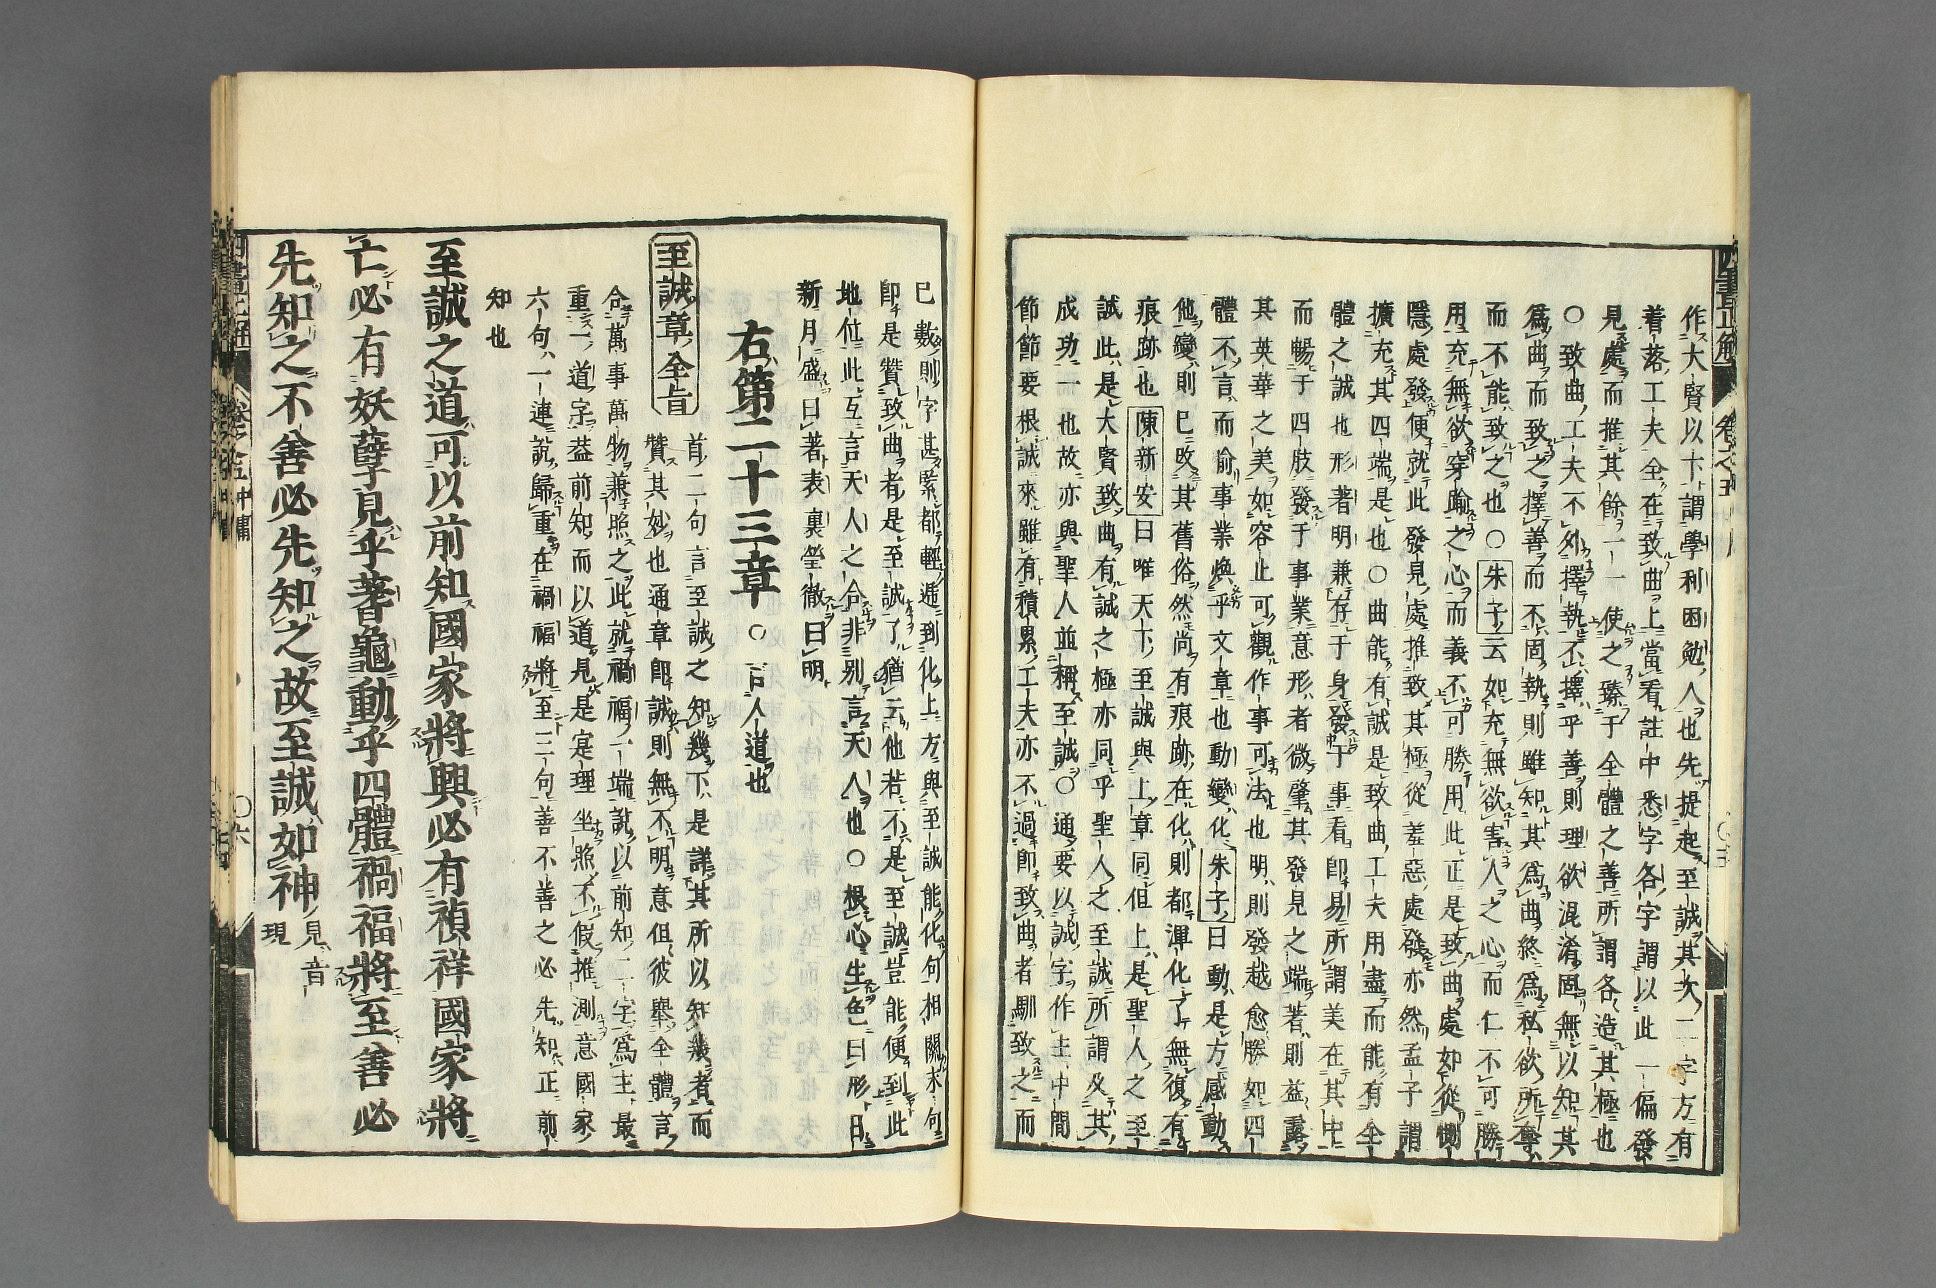 作大賢以下謂學利困勉人也先提起至誠其次二字方有
着落工夫全在致曲上當看註中悉字各字謂以此一偏發
見處而推其餘一一使之臻于全體之善所謂各造其極也
○致曲工夫不外擇執不擇乎善則理欲混淆固無以知其
爲曲而致之擇善而不固執則雖知其爲曲終爲私欲所奪
而不能致之也○朱子云如充無欲害人之心而仁不可勝
用充無欲穿踰之心而義不可勝用此正是致曲處如從惻
隱處發便就此發見處推致其極從羞惡處發亦然孟子謂
擴充其四端是也○曲能有誠是致曲工夫用盡而能有全
體之誠也形著明兼存于身發于事看卽易所謂美在其中
而暢于四肢發于事業意形者微肇其發見之端著則益露
其英華之美如容止可觀作事可法也明則發越愈勝如四
體不言而喻事業煥乎文章也動變化朱子曰動是方感動
他變則已改其舊俗然尚有痕跡在化則都渾化了無復有
痕跡也陳新安曰唯天下至誠與上章同但上是聖人之至
誠此是大賢致曲有誠之極亦同乎聖人之至誠所謂及其
成功一也故亦與聖人並稱至誠○通要以誠字作主中間
節節要根誠來雖有積累工夫亦不過卽致曲者馴致之而
已數則字甚緊都輕遞到化上方與至誠能化句相關末句
卽是贊致曲者是至誠了猶云他若不是至誠豈能便到此
地位此互言天人之合非别言天人也○根心生色曰形日
新月盛曰著表裏瑩徹曰明
右第二十三章○言人道也
至誠章全旨
首二句言至誠之知幾下是詳其所以知幾者而
贊其妙也通章卽誠則無不明意但彼舉全體言
合萬事萬物兼照之此就禍福一端說以前知二字爲主最
重一道字益前知而以道見是寔理坐照不假推測意國家
六句一連說歸重在禍福將至三句善不善之必先知正前
知也
至誠之道可以前知國家將興必有禎祥國家將
亡必有妖孽見乎蓍龜動乎四體禍福將至善必
先知之不善必先知之故至誠如神見音
現